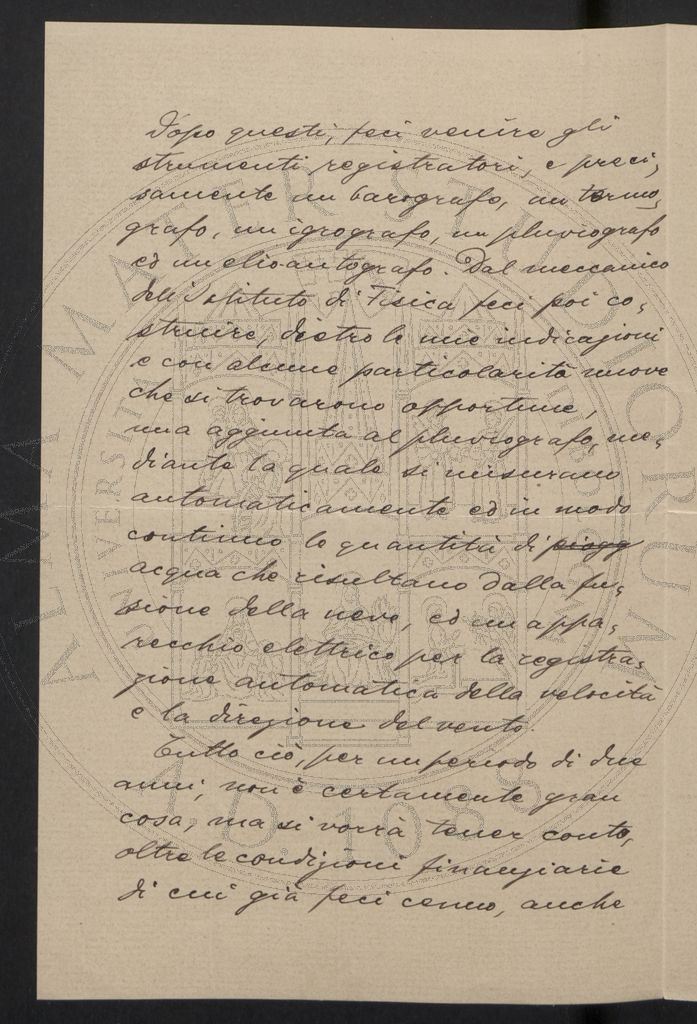 Dopo questi, feci venire gli
strumenti registratori, e preci,
samente un barografo, un termo,
grafo, un igrografo, un pluviografo
ed un elio-autografo. Dal meccanico
dell'Istituto di Fisica feci poi co,
struire, dietro le mie indicazioni
e con alcune particolarità nuove
che si trovarono opportune,
una aggiunta al pluviografo, me,
diante la quale si misurano
automaticamente ed in modo
continuo le quantità di piogg
acqua che risultano dalla fu,
sione della neve, ed un appa,
recchio elettrico per la registra,
zione automatica della velocità
e la direzione del vento.
Tutto ciò, per un periodo di due
anni, non è certamente gran
cosa, ma si vorrà tener conto,
oltre le condizioni finanziarie
di cui già feci cenno, anche
ALMA MATER STUDIORUM
UNIVERSITÀ
A.D. 1088